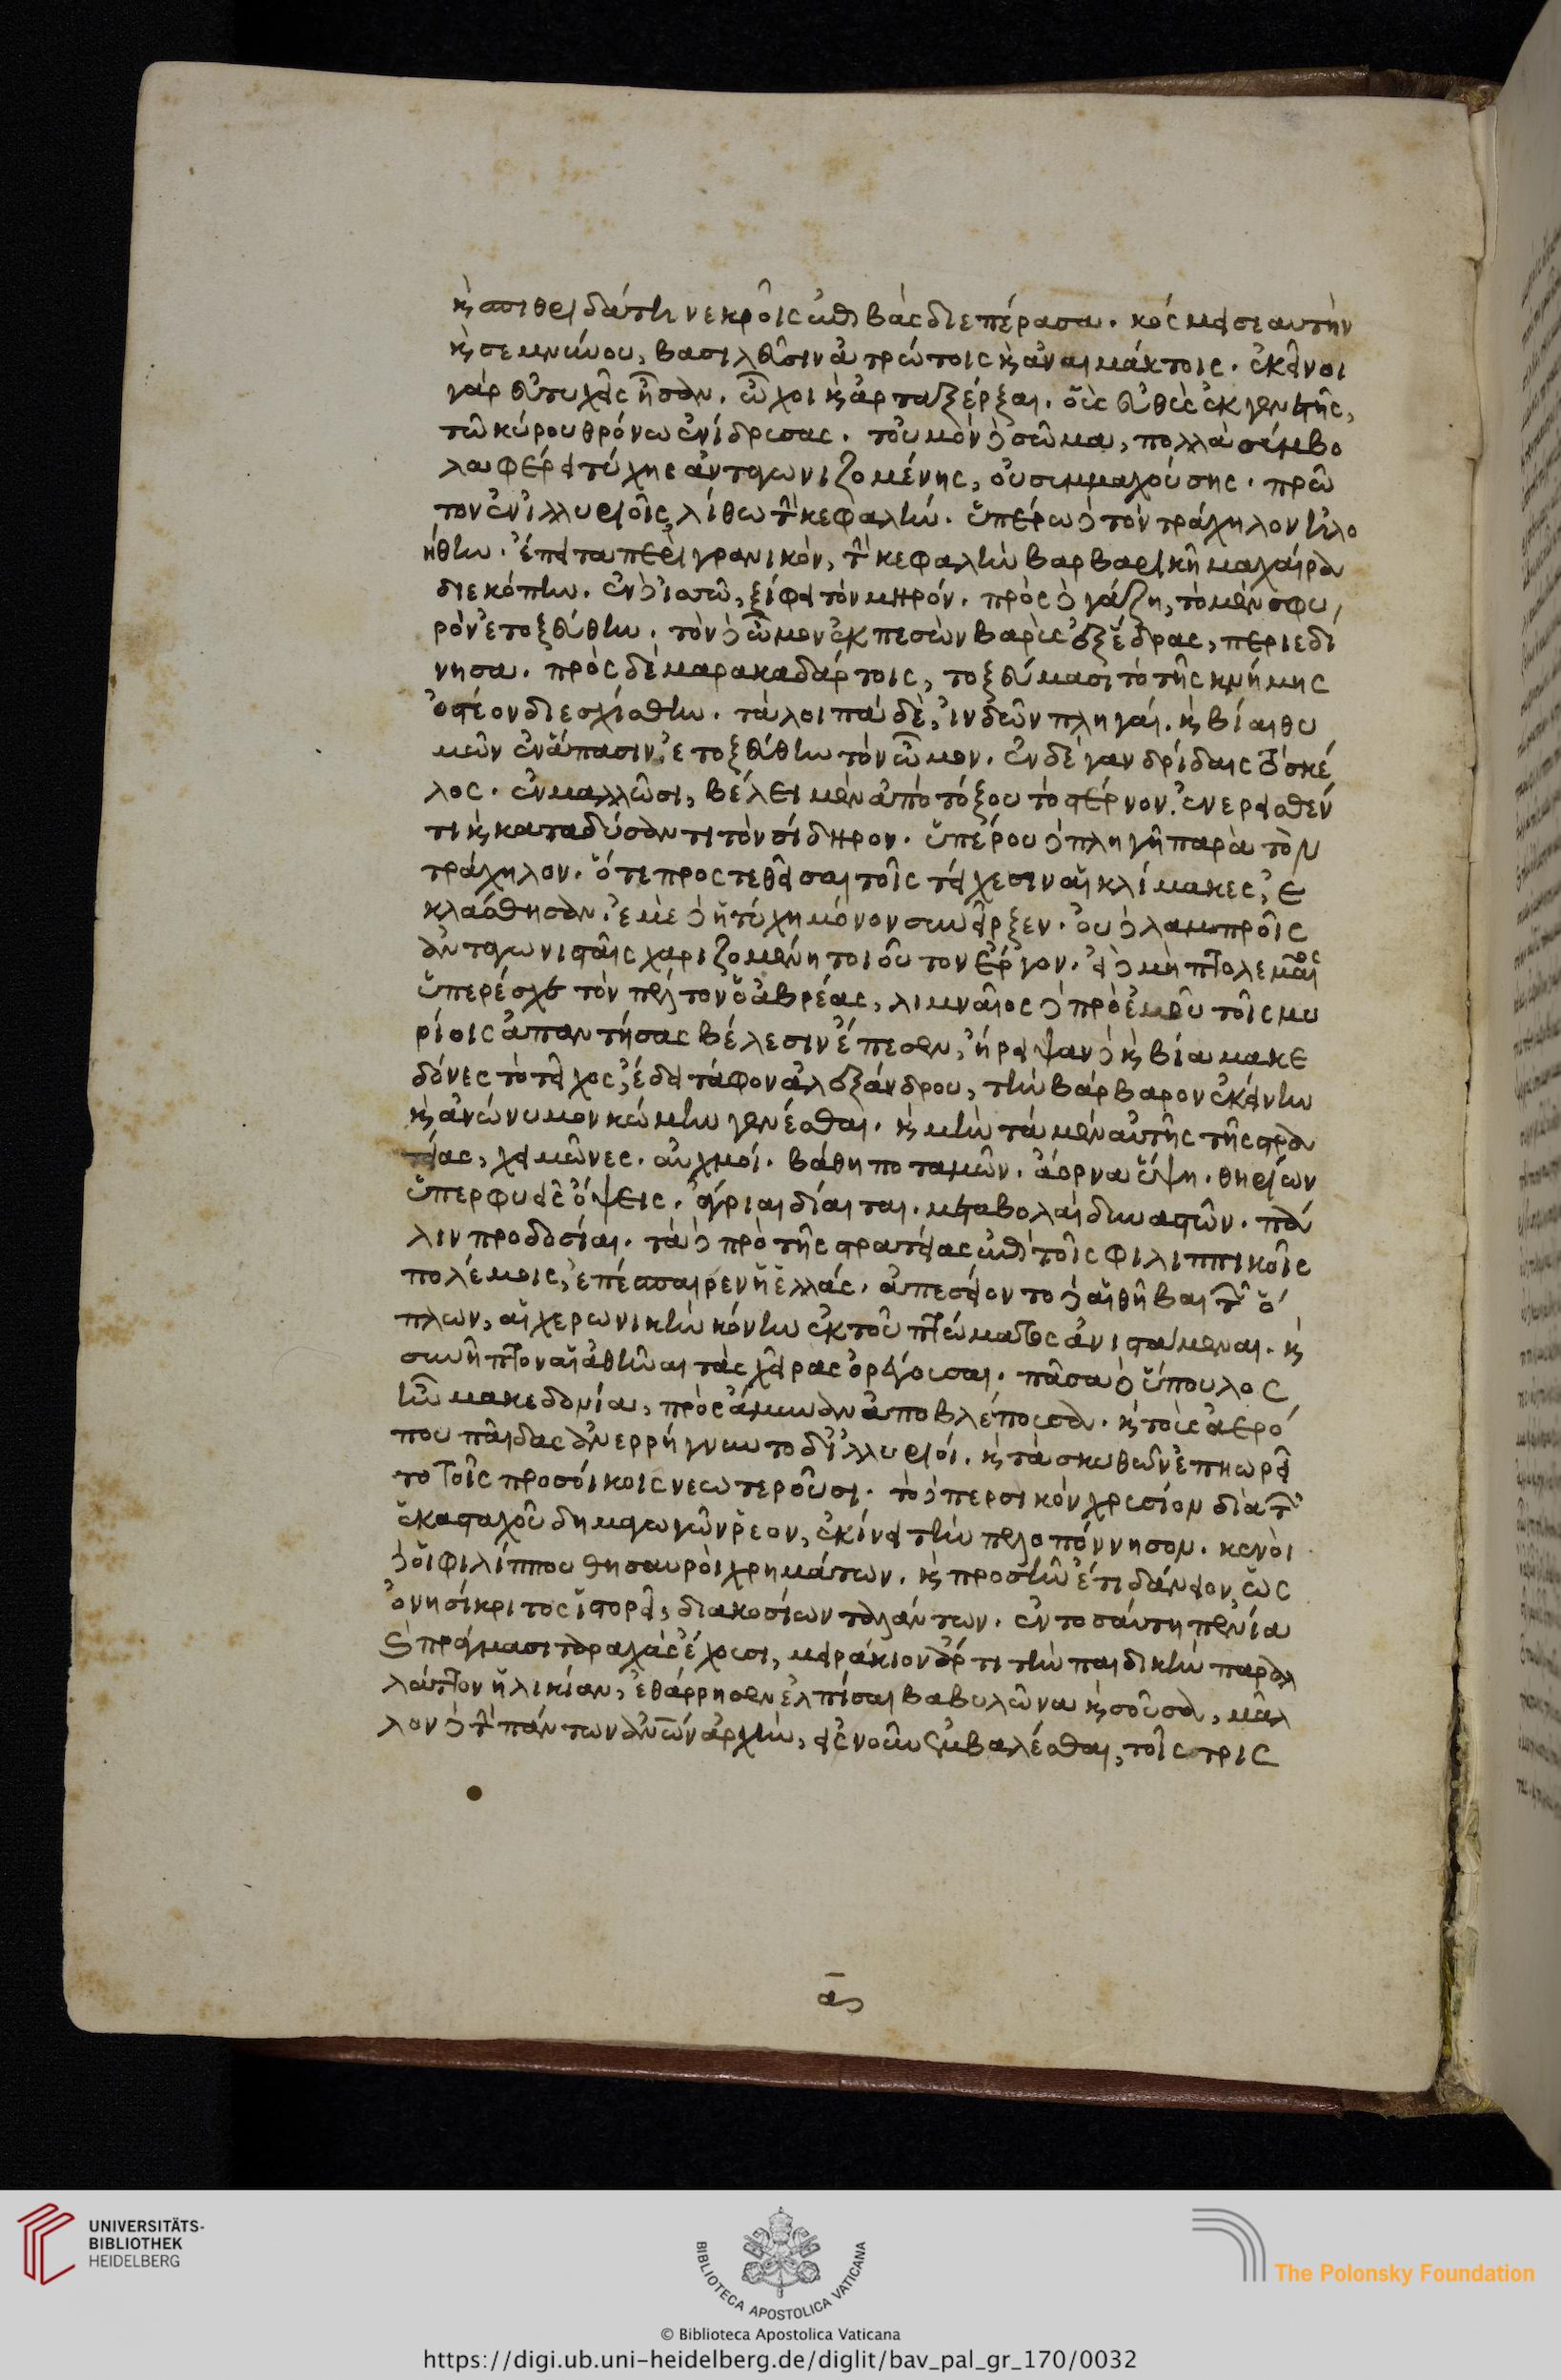 καὶ σπιθριδάτῃ νεκροῖς ἐπιβὰς διεπέρασα. κόσμει σεαυτὴν
καὶ σεμνύνου, βασιλεῦσιν ἀτρώτοις καὶ ἀναιμάκτοις. ἐκεῖνοι
γὰρ εὐτυχεῖς ἦσαν. ὦχοι καὶ ἀρταξέρξαι. οὓς εὐθὺς ἐκ γενετῆς,
τῶ κύρου θρόνω ἐνίδρυσας. τοὐμὸν δὲ σῶμα, πολλὰ σύμβο
λα φέρει τύχης ἀνταγωνιζομένης, οὐ συμμαχούσης. πρῶ
τον ἐν ἰλλυριοῖς, λίθω τὴν κεφαλήν. ὑπέρω δὲ τὸν τράχηλον ἠλο
ήθην. ἔπειτα περὶ γρανικὸν, τὴν κεφαλὴν βαρβαρικῇ μαχαίρα
διεκόπην. ἐν δὲ ἰσσῶ, ξίφει τὸν μηρόν. πρὸς δὲ γάζη, τὸ μὲν σφυ
ρὸν ἐτοξεύθην. τὸν δὲ ὦμον ἐκπεσὼν βαρὺς ἐξ ἕδρας, περιεδί
νησα. πρὸς δὲ μαρακαδάρτοις, τοξεύμασι τὸ τῆς κνήμης
ὀστέον διεσχίσθην. τὰ λοιπὰ δὲ, ἰνδῶν πληγαί. καὶ βίαι θυ
μῶν ἐν ἅπασιν, ἐτοξεύθην τὸν ὦμον. ἐν δὲ γανδρίδαις τὸ σκέ
λος. ἐν μαλλῶσι, βέλει μὲν ἀπὸ τόξου τὸ στέρνον. ἐνερεισθέν
τι καὶ καταδύσαντι τὸν σίδηρον. ὑπέρου δὲ πληγῇ παρὰ τὸν
τράχηλον. ὅτε προστεθεῖσαι τοῖς τείχεσιν αἱ κλίμακες, ἐ
κλάσθησαν. ἐμὲ δὲ ἡ τύχη μόνον συνεῖρξεν. οὐ δὲ λαμπροῖς
ἀνταγωνισταῖς χαριζομένη τοιοῦτον ἔργον. εἰ δὲ μὴ πτολεμαῖος
ὑπερέσχε τὸν πελτὸν ὁ ἀβρέας, λιμναῖος δὲ πρὸ ἐμοῦ τοῖς μυ
ρίοις ἀπαντήσας βέλεσιν ἔπεσεν, ἤρειψαν δὲ καὶ βία μακε
δόνες τὸ τεῖχος, ἔδει τάφον ἀλεξάνδρου, τὴν βάρβαρον ἐκείνην
καὶ ἀνώνυμον κώμην γενέσθαι. καὶ μὴν τὰ μὲν αὐτῆς τῆς στρα
τείας, χειμῶνες. αὐχμοί. βάθη ποταμῶν. ἄορνα ὕψη. θηρίων
ὑπερφυεῖς ὄψεις. ἄγριαι δίαιται. μεταβολαὶ δυναστῶν. πα
λινπροδοσίαι. τὰ δὲ πρὸ τῆς στρατείας ἐπὶ τοῖς φιλιππικοῖς
πολέμοις, ἐπέσπαιρεν ἡ ἑλλάς. ἀπεσείοντο δὲ αἱ θῆβαι τῶν ὅ
πλων, αἱ χερωνικὴν κόνιν ἐκ τοῦ πτώματος ἀνιστάμεναι. καὶ
συνῆπτον αἱ ἀθῆναι τὰς χεῖρας ὀρέγουσαι. πᾶσα δὲ ὕπουλος
ἦν μακεδονία, πρὸς ἀμύναν ἀποβλέπουσα. καὶ τοὺς ἀερό
που παῖδας ἀνερρήγνυντο δ' ἰλλυριοί. καὶ τὰ σκυθῶν ἐπῃωρεῖ
το τοῖς προσοίκοις νεωτεροῦσι. τὸ δὲ περσικὸν χρυσίον διὰ τῶν
ἑκασταχοῦ δημαγωγῶν ῥέον, ἐκίνει τὴν πελοπόννησον. κενοὶ
δὲ οἱ φιλίππου θησαυροὶ χρημάτων. καὶ προσῆν ἔτι δάνειον, ὡς
ὀνησίκριτος ἱστορεῖ, διακοσίων ταλάντων. ἐν τοσαύτη πενία
καὶ πράγμασι ταραχὰς ἔχουσι, μειράκιον ἄρτι τὴν παιδικὴν παραλ
λάττον ἡλικίαν, ἐθάρρησεν ἐλπίσαι βαβυλῶνα καὶ σοῦσα, μᾶλ
λον δὲ τὴν πάντων ἀνθρώπων ἀρχὴν, εἰς νοῦν ἐμβαλέσθαι, τοῖς τρις
UNIVERSITÄTS-
BIBLIOTHEK
HEIDELBERG
BIBLIOTECA APOSTOLICA VATICANA
The Polonsky Foundation
© Biblioteca Apostolica Vaticana
https://digi.ub.uni-heidelberg.de/diglit/bav_pal_gr_170/0032